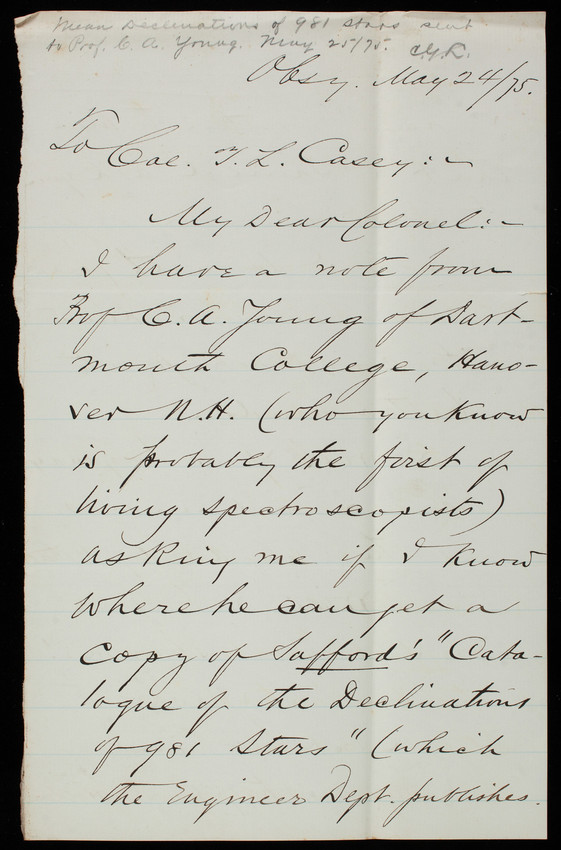 Mean Declinations of 981 stars sent
to Prof. C. A. Young. May 25/75. C.G.R.
Obsy. May 24/75.
To Col. T. L. Casey:-
My Dear Colonel:-
I have a note from
Prof C. A. Young of Dart-
mouth College, Hano-
ver N.H. (who you know
is probably the first of
living spectroscopists)
asking me if I know
where he can get a
copy of Safford's "Cata-
logue of the Declinations
of 981 Stars" (which
the Engineer Dept. publishes.